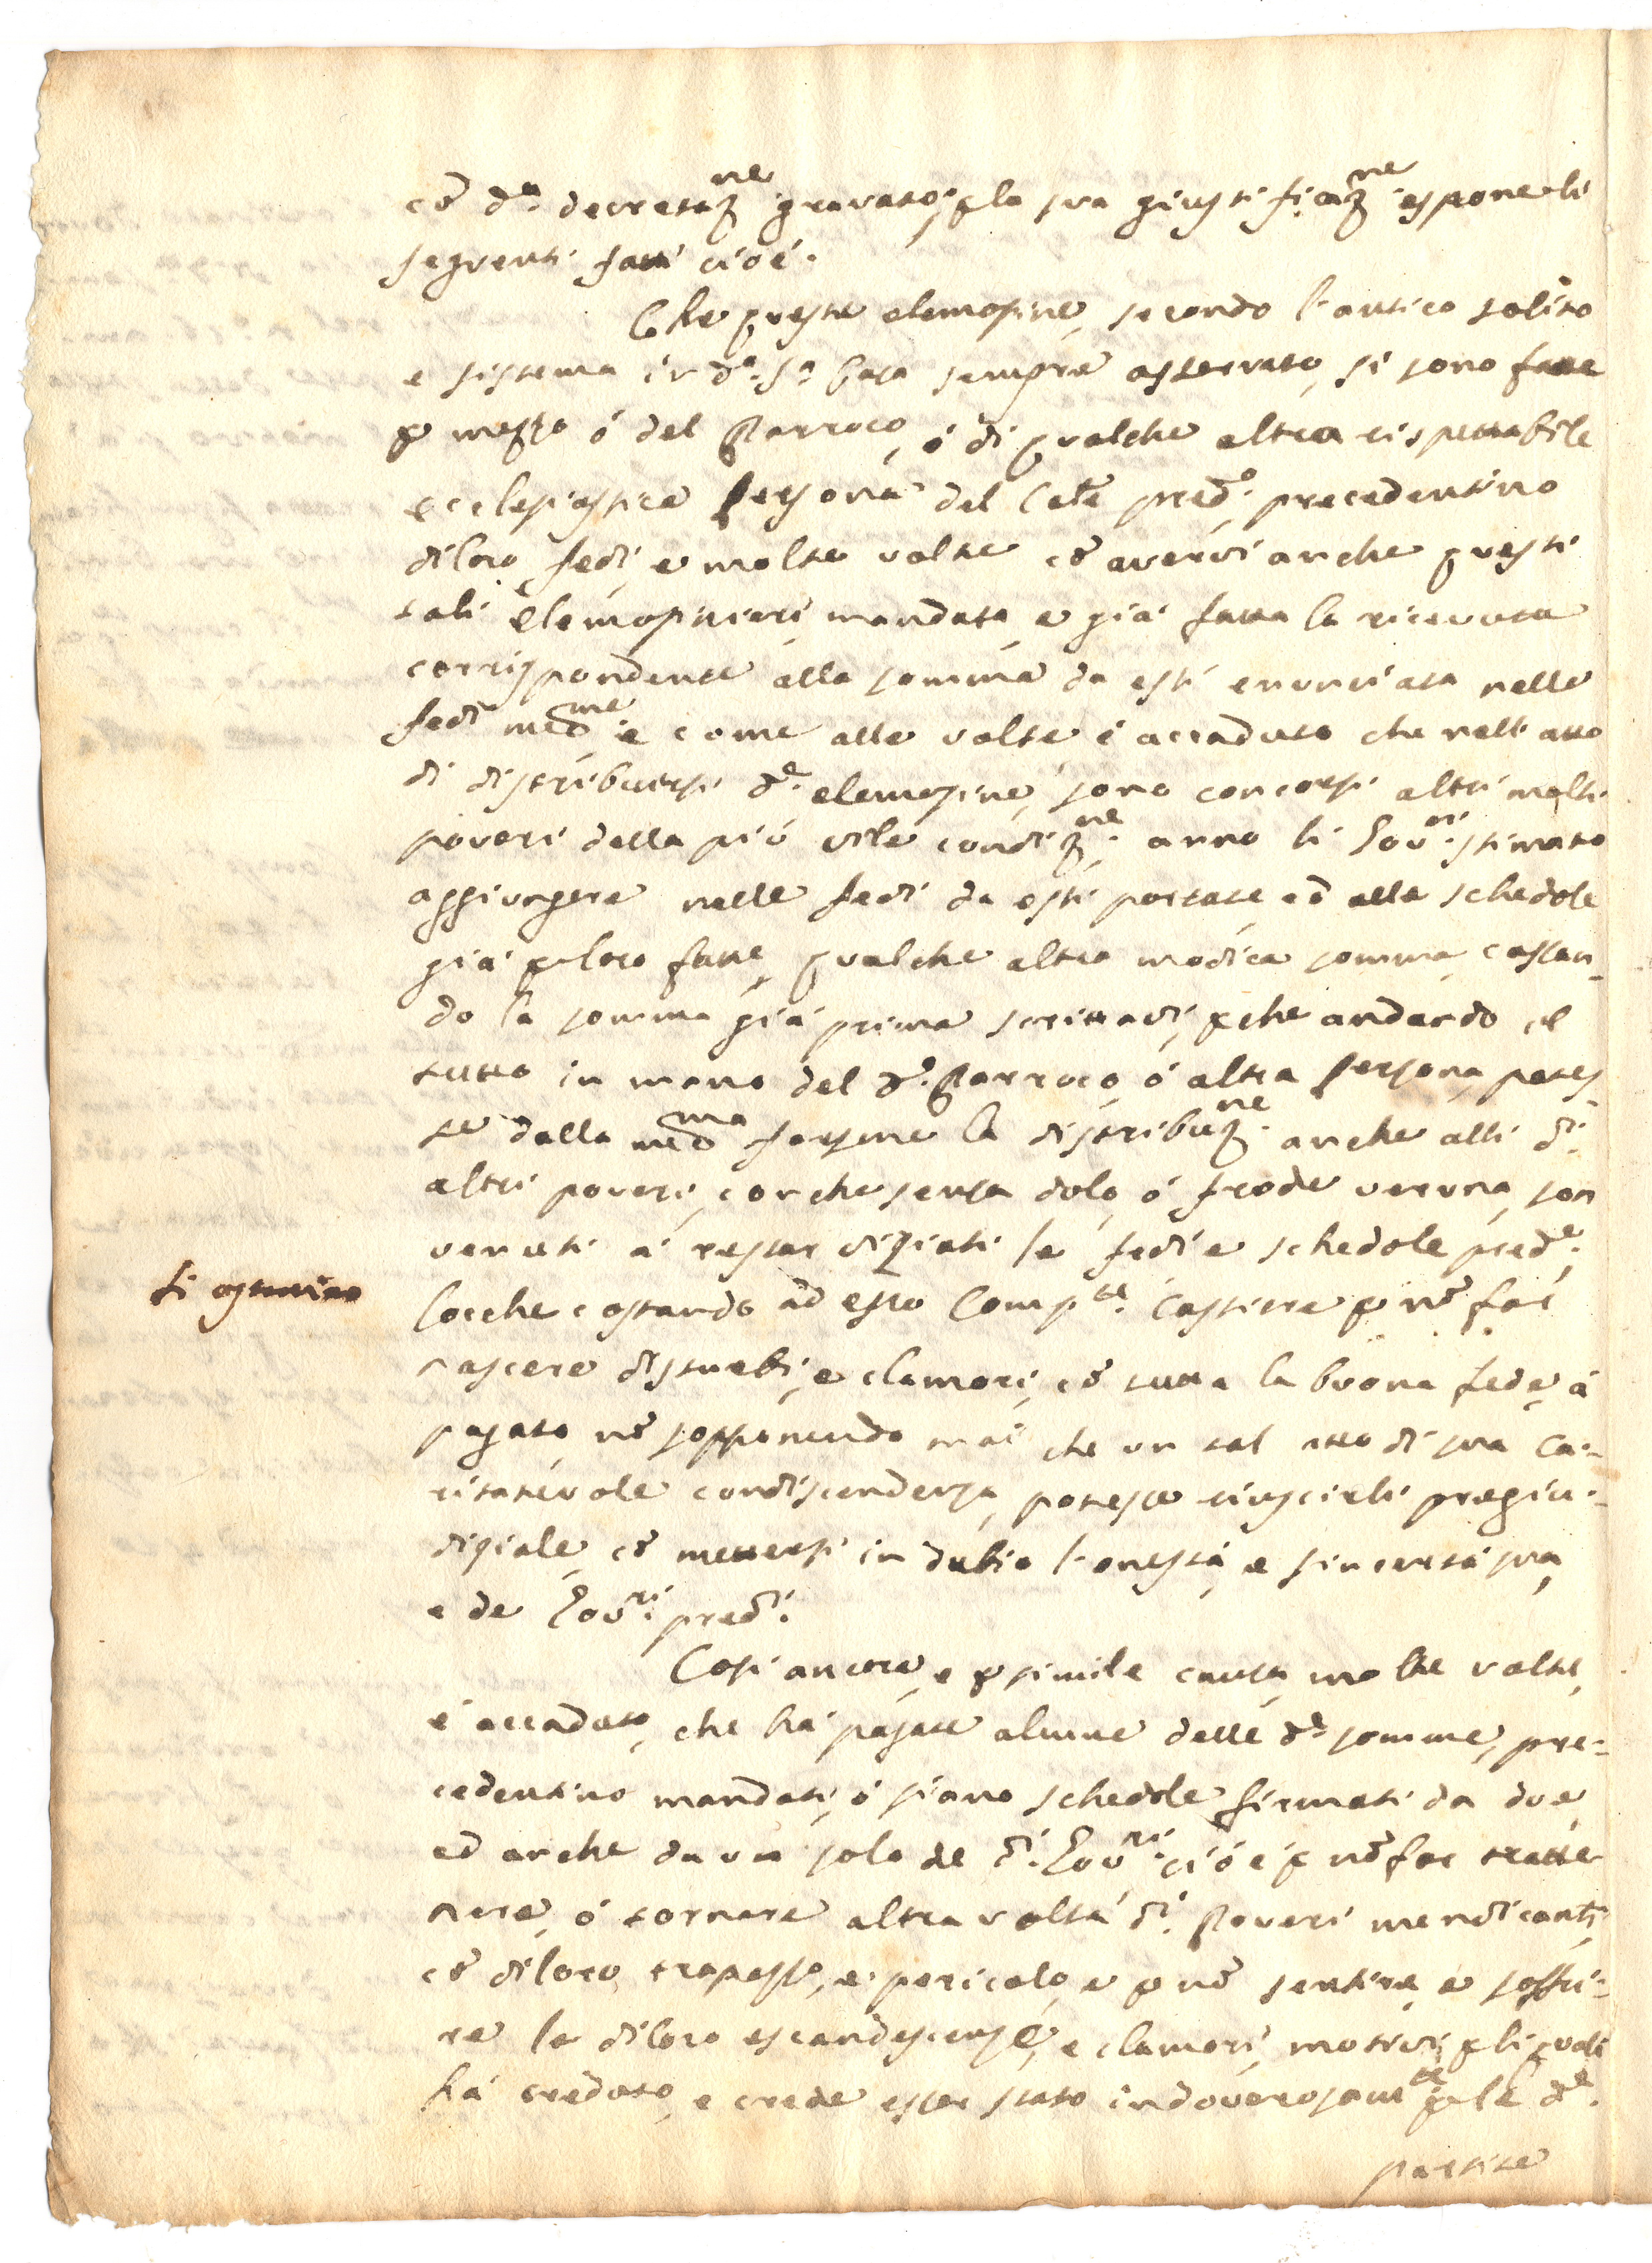 cõ d.ª decretaz.ne gravato; p la sua giustificaz.ne espone li
seguenti fatti cioè.
Che queste elemosine, secondo l'antico solito
e sistema in d.ª S.ª Casa sempre osservato, si sono fatte
p mezzo ó del Parroco, ó di qualche altra rispettabile
ecclesiastica Persona del Cete pred.º precedentino
di loro fedi, e molte volte cõ avervi anche questi
tali elemosinieri mandata, e già fatta la ricevuta
corrispondente alla somma da essi enunciata nelle
fedi med.me; e come alle volte è accaduto che nell'atto
di distribuirsi d.e elemosine, sono concorsi altri molti
poveri della più vile condiz.ne, anno li Gov.ri stimato
aggiungere nelle fedi da essi portate, ed alle schedole
già p loro fatte, qualche altra modica somma, cassan-
do la somma già prima scrittavi, p che andando il
tutto in mano del d.º Parroco, ó altra Persona, potes-
se dalla med.ma farsene la distribuz.ne anche alli d.i
altri poveri, con che senza dolo, ó frode veruna, son
venuti á restar viziati le fedi e schedole pred.e
Si osservino
Locche costando ad esso Comp.te Cassiere p nõ far
nascere disturbi, e clamori, cõ tutta la buona fede á
pagato, nõ sopponendo mai che un tal atto di sua ca-
ritatevole condiscendenza, potesse riuscirli pregiu-
diziale, cõ mettersi in dubio l'onestà, e sincerità sua,
e de Gov.ri pred.i
Così ancora, e p simile causa, molte volte,
é accaduto, che há pagate alcune delle d.e somme, pre-
cedentino mandati, ó siano schedole firmati da due,
ed anche da un solo de d.i Gov.ri, ció é p nõ far tratte
nere, ó tornare altra volta d.i Poveri mendicanti,
cõ di loro trapasso, e pericolo, e p nõ sentire, e soffri-
re le di loro escandescenze, e clamori, motivi p li quali
há creduto, e crede esser stato indoverosam.te p le d.e
partite